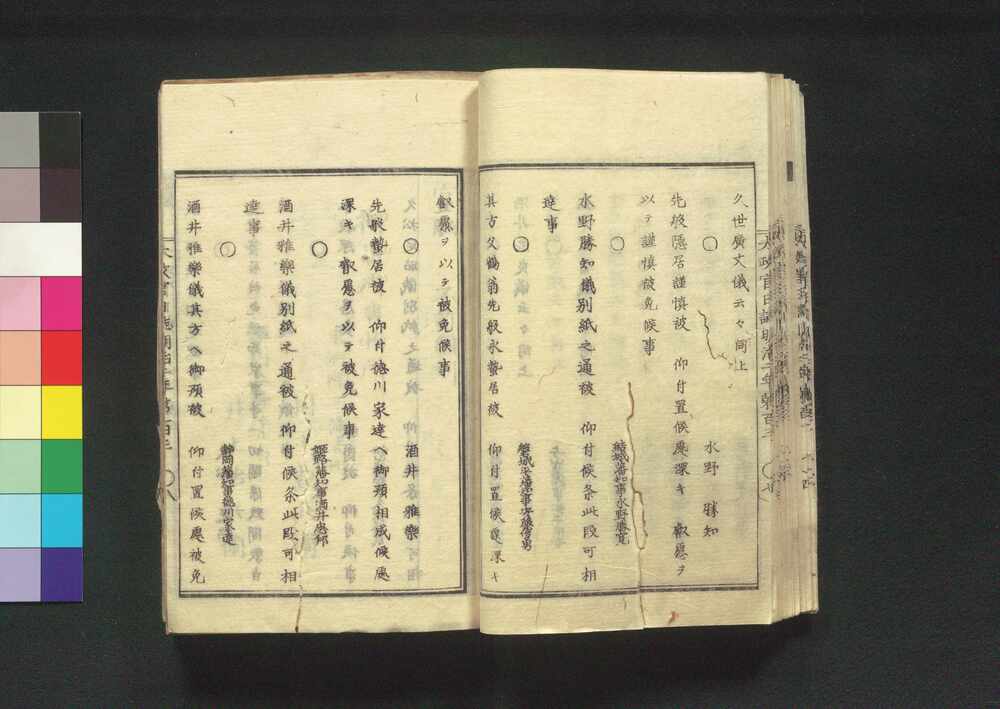 久世廣文儀云々同上
○　水野　勝知
先般隠居謹慎被　仰付置候處深キ　叡慮ヲ
以テ謹慎被免候事
○　結城藩知事水野勝寛
水野勝知儀別紙之通被　仰付候条此段可相
達事
○
其方父鶴翁先般永蟄居被　仰付置候處深キ
叡慮ヲ以テ被免候事
○　酒井　雅樂
先般蟄居被　仰付徳川家達ヘ御預相成候處
深キ　叡慮ヲ以テ被免候事
○　姫路藩知事酒井忠邦
酒井雅樂儀別紙之通被　仰付候条此段可相
達事
○　静岡藩知事徳川家達
酒井雅樂儀其方ヘ御預被　仰付置候處被免